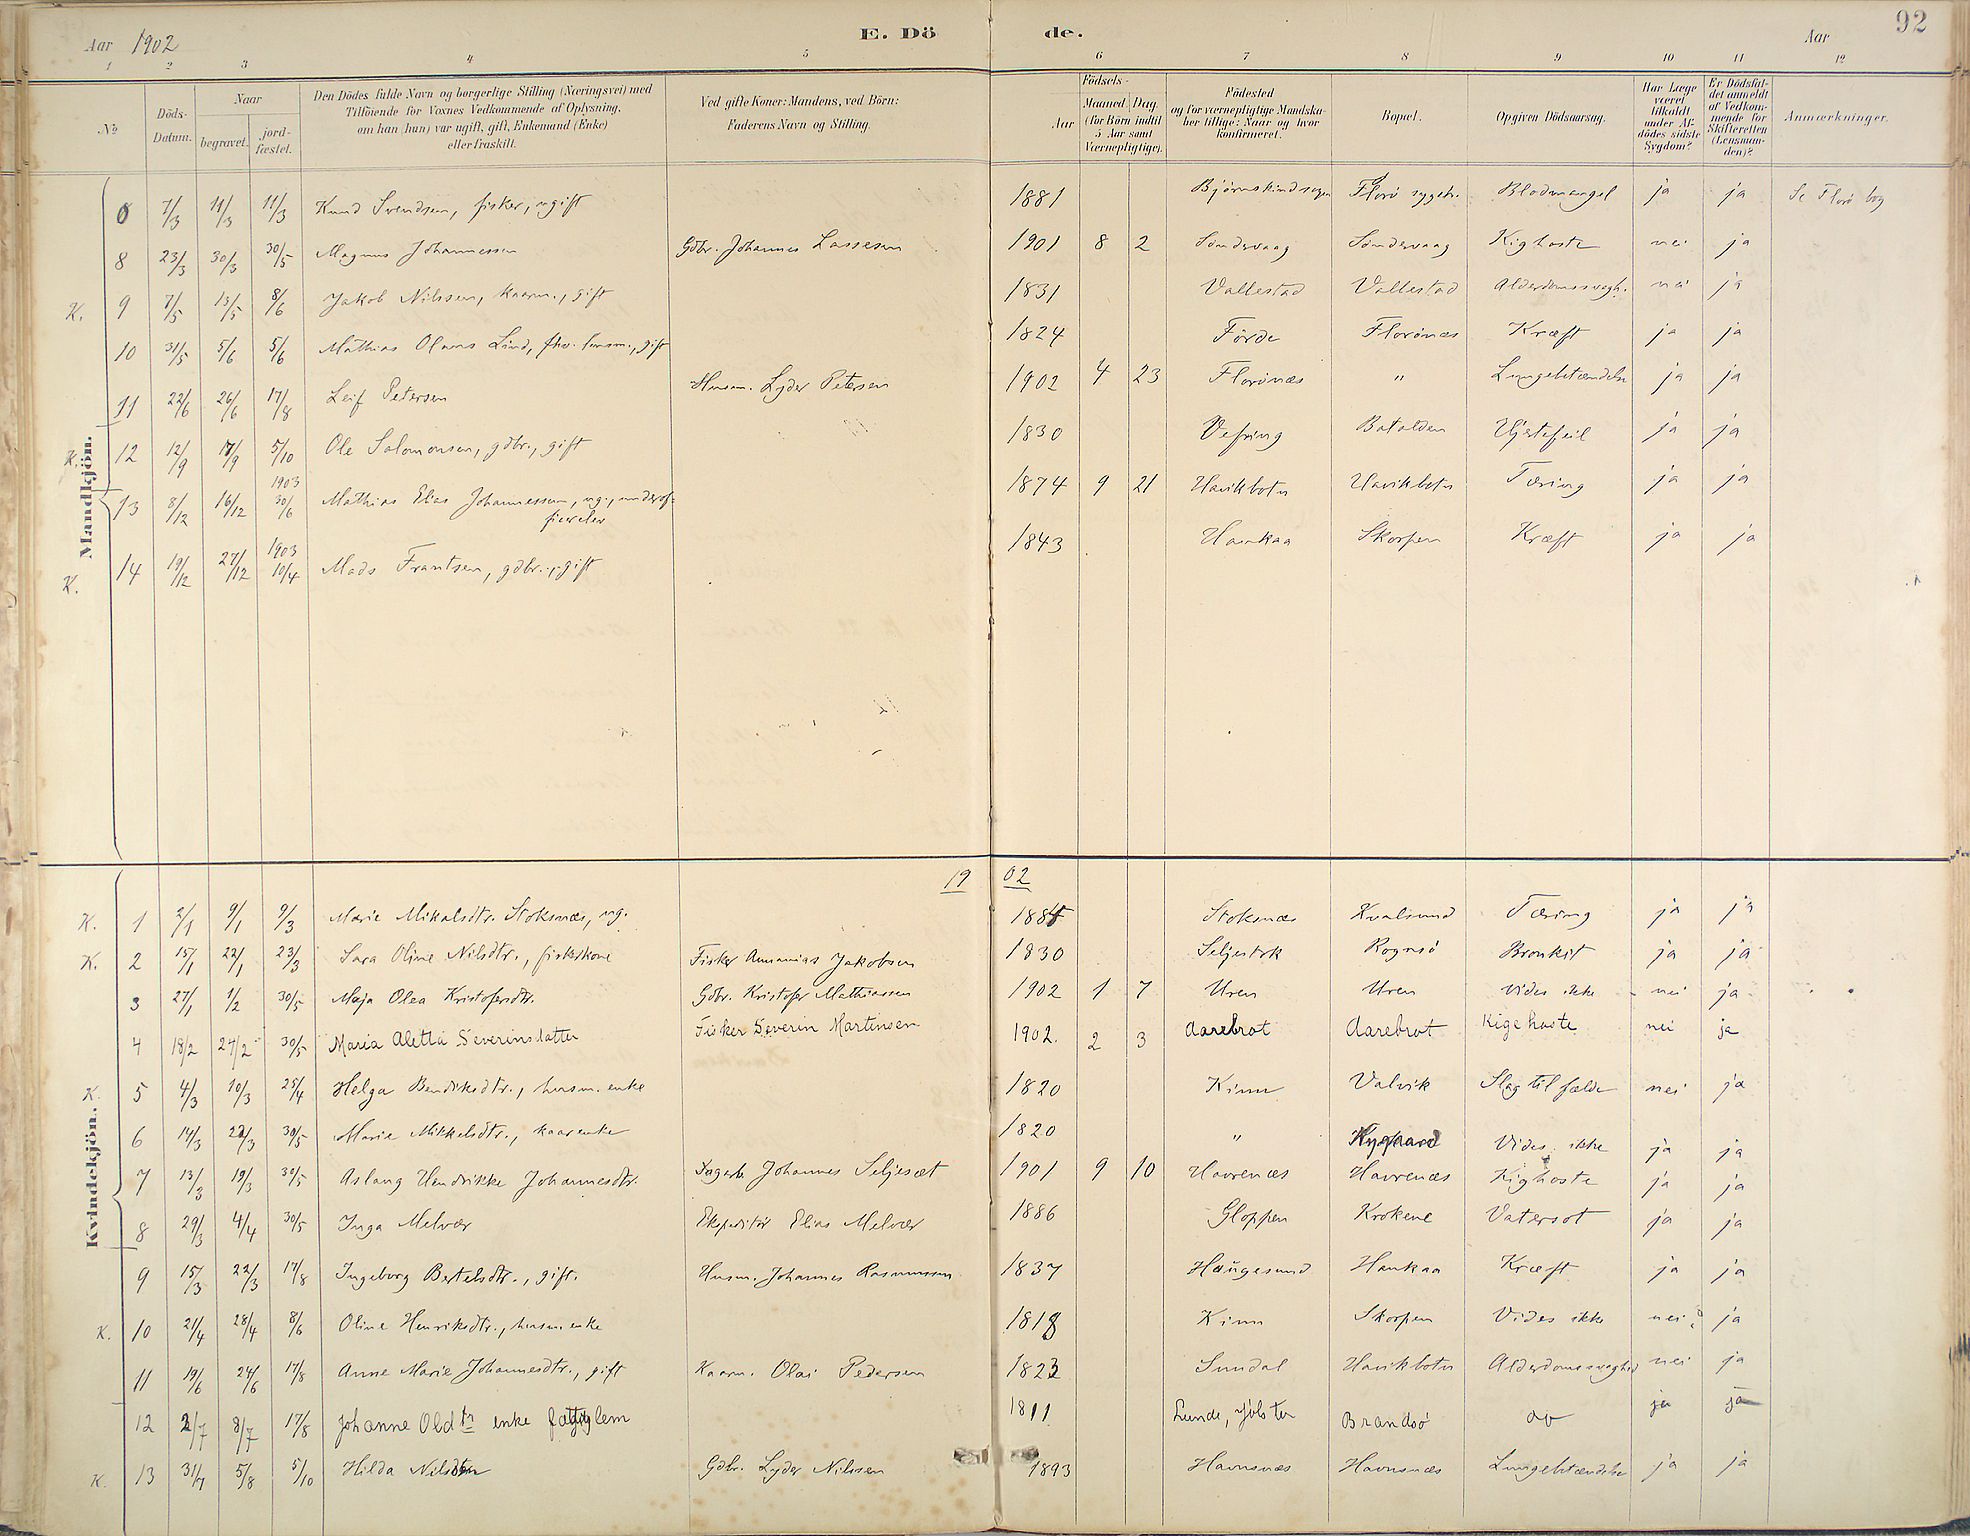 92
Aar 1902 E. Dö de. Aar
1 2 3 4 5 6 7 8 9 10 11 12
No
Döds-Datum.
Naar
begravet. jord-fæstet.
Den Dödes fulde Navn og borgerlige Stilling (Næringsvei) med
Tilföiende for Voxnes Vedkommende af Oplysning,
om han (hun) var ugift, gift, Enkemand (Enke)
eller fraskilt.
Ved gifte Koner: Mandens, ved Börn:
Faderens Navn og Stilling.
Födsels-
Aar
Maaned Dag.
(for Börn indtil
5 Aar samt
Værnepligtige).
Födested
og for værnepligtige Mandska-
ber tillige: Naar og hvor
konfirmeret.
Bopæl.
Opgiven Dödsaarsag.
Har Læge
været
tilkaldt
under Af-
dödes sidste
Sygdom?
Er Dödsfal-
det anmeldt
af Vedkom-
mende for
Skifteretten
(Lensman-
den)?
Anmærkninger.
Mandkjön.
7/3 11/3 11/3 Knud Svendsen, fisker, ugift 1881 Florö sygeh. Blodmangel ja ja Se Florö bog
8 23/3 30/3 30/5 Magnus Johannessen Gdbr. Johannes Lassesen 1901 8 2 Söndervaag Söndervaag Kighoste nei ja
K. 9 7/5 13/5 8/6 Jakob Nilssen, kaarm., gift 1831 Vallestad Vallestad Alderdomssvagh. nei ja
10 31/5 5/6 5/6 Mathias Olaus Lind, fhv. lensm., gift 1824 Förde Florönæs Kræft ja ja
11 22/6 26/6 17/8 Leif Petersen Husm. Lyder Petersen 1902 4 23 Florönæs " Lungebetændelse ja ja
K. 12 12/9 17/9 5/10 Ole Salomonsen, gdbr., gift 1830 Vefring Batalden Hjertefeil ja ja
13 8/12 16/12 1903 30/6 Mathias Elias Johannessen, ug., underof-
ficerelev 1874 9 21 Havikbotn Havikbotn Tæring ja ja
K. 14 19/12 27/12 1903 10/4 Mads Frantsen, gdbr., gift 1843 Haukaa Skorpen Kræft ja ja
19 02
Kvindekjön.
K. 1 2/1 9/1 9/3 Marie Mikalsdtr. Stoksnæs, ug. Stoksnæs Kvalsund Tæring ja ja
K. 2 15/1 22/1 23/3 Sara Oline Nilsdtr., fiskerkone Fisker Annanias Jakobsen 1830 Rognsö Bronkit ja ja
3 27/1 1/2 30/5 Maja Olea Kristofersdtr. Gdbr. Kristofer Mathiassen 1902 1 7 Uren Uren Vides ikke nei ja
4 18/2 24/2 30/5 Maria Aletta Severinsdatter Fisker Severin Martinsen 1902. 2 3 Aarebrot Aarebrot Kigehoste nei ja
K. 5 4/3 10/3 25/4 Helga Bendiksdtr., husm. enke 1820 Kinn Valvik Slagtilfælde nei ja
6 14/3 22/3 30/5 Marie Mikkelsdtr., kaarenke 1820 " Vides ikke ja ja
7 13/3 19/3 30/5 Aslaug Hendrikke Johannesdtr. Johannes Seljeset 1901 9 10 Havrenæs Havrenæs Kighoste ja ja
8 29/3 4/4 30/5 Inga Melvær Ekspeditör Elias Melvær 1886 Gloppen Krokene Vatersot ja ja
9 15/3 22/3 17/8 Ingeborg Bertelsdtr., gift. Husm. Johannes Rasmussen 1837 Haugesund Haukaa Kræft ja ja
K. 10 21/4 28/4 8/6 Oline Henriksdtr., husm. enke 1818 Kinn Skorpen Vides ikke nei ja
11 19/6 24/6 17/8 Anne Marie Johannesdtr., gift Kaarm. Olai Pedersen 1823 Sundal Havikbotn Alderdomssvaghed nei ja
12 2/7 8/7 17/8 Johanne Oldtr enke fattiglem 1811 Lunde, Jölster Brandsö do ja ja
K. 13 31/7 5/8 5/10 Hilda Nilsdtr Gdbr. Lyder Nilssen 1893 Havnsnæs Havnsnæs Lungebetændelse ja ja